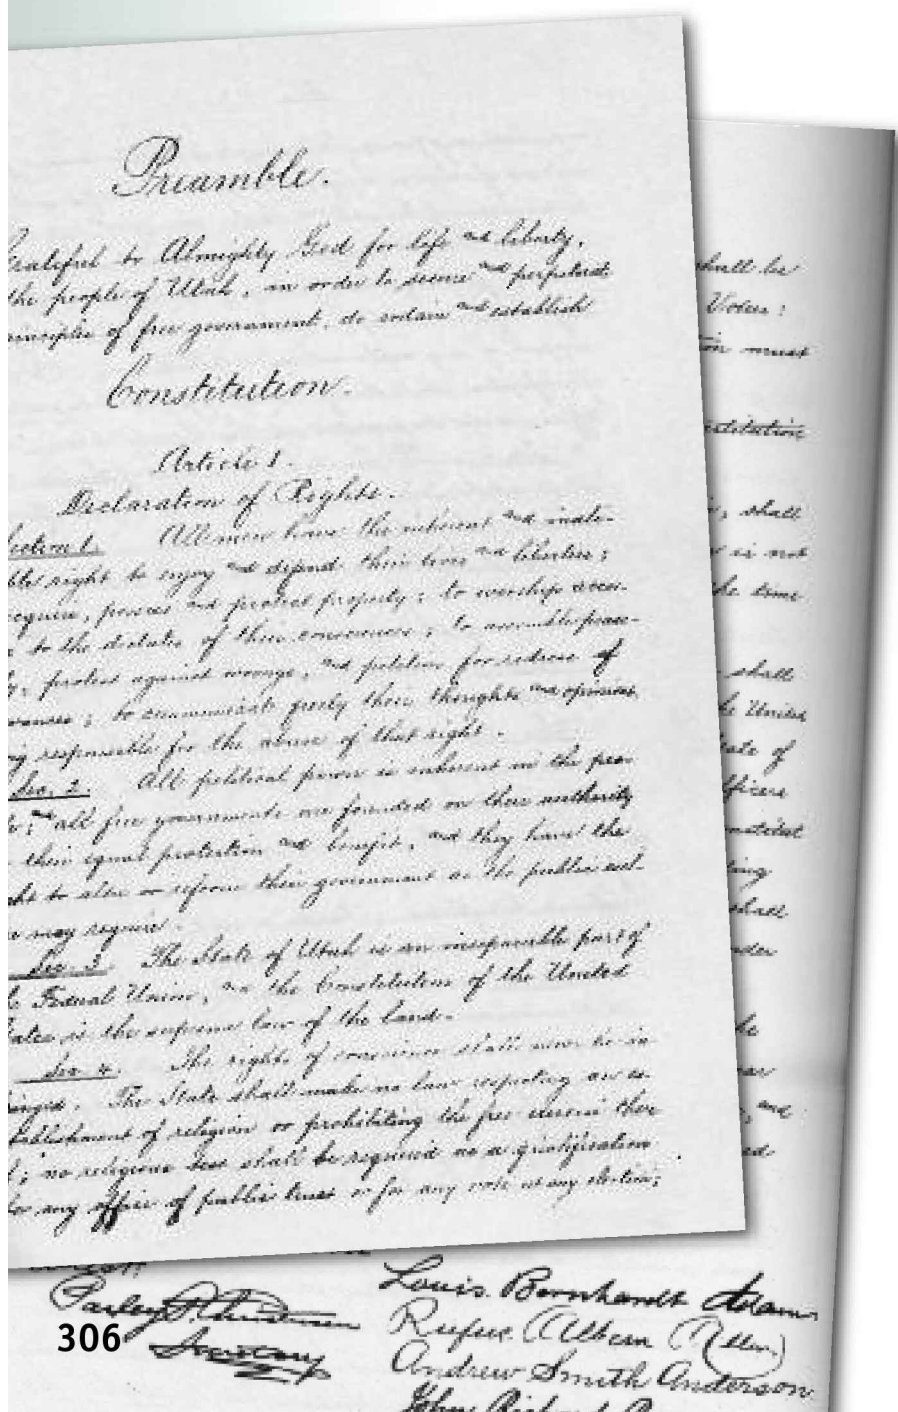 Preamble.
rateful to Almighty God for life and liberty,
the people of Utah, in order to secure and perpetuate
rinciples of free government, do ordain and establish
Constitution.
Article 1.
Declaration of Rights.
ection 1. All men have the inherent and inalie-
ble right to enjoy and defend their lives and liberties;
cquire, possess and protect property; to worship accor-
to the dictates of their consciences; to assemble peace-
y, protest against wrongs, and petition for redress of
vances; to communicate freely their thoughts and opinions,
g responsible for the abuse of that right.
Sec. 2. All political power is inherent in the peo-
e; and all free governments are founded on their authority
their equal protection and benefit, and they have the
ht to alter or reform their government as the public wel-
e may require.
Sec. 3. The State of Utah is an inseparable part of
e Federal Union, and the Constitution of the United
tates is the supreme law of the land.
Sec 4. The rights of conscience shall never be in-
inged. The State shall make no law respecting an es-
tablishment of religion or prohibiting the free exercise there
f; no religious test shall be required as a qualification
for any office of public trust or for any vote at any election;
shall be
Voters:
ion must
nstitution
, shall
is not
the time
shall
he United
tate of
fficers
onstitut
ting
shall
nder
he
, and
ed
Parley P. Christensen
Secretary
Louis Bernhardt Adams
Rufus Albern Allen
Andrew Smith Anderson
John Richard
306